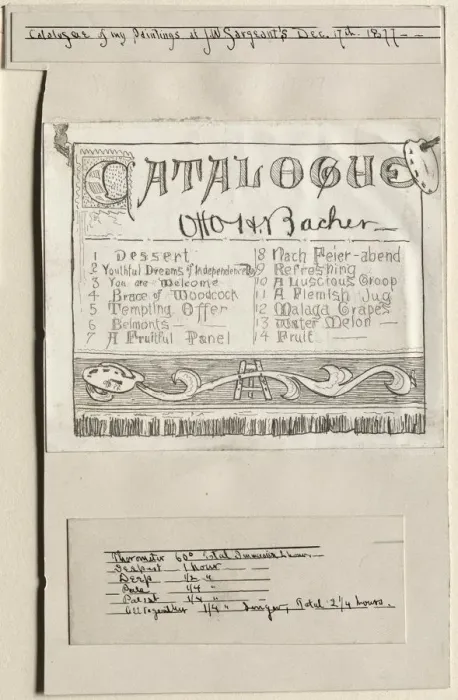 Catalogue of my Paintings at J.W. Sargeant's Dec. 17th. 1877 - -
CATALOGUE
Otto H. Bacher
1 Dessert
2 Youthful Dreams of Independence Day
3 You are Welcome
4 Brace of Woodcock
5 Tempting Offer
6 Belmonts
7 A Fruitful Panel
8 Nach Feier-abend
9 Refreshing
10 A Luscious Group
11 A Flemish Jug
12 Malaga Grapes
13 Water Melon
14 Fruit
60° Total Immersion hour
1 hour
Deep 1/2 "
Pale 1/4 "
1/4 "
1/4 " longer, Total 2 1/4 hours.